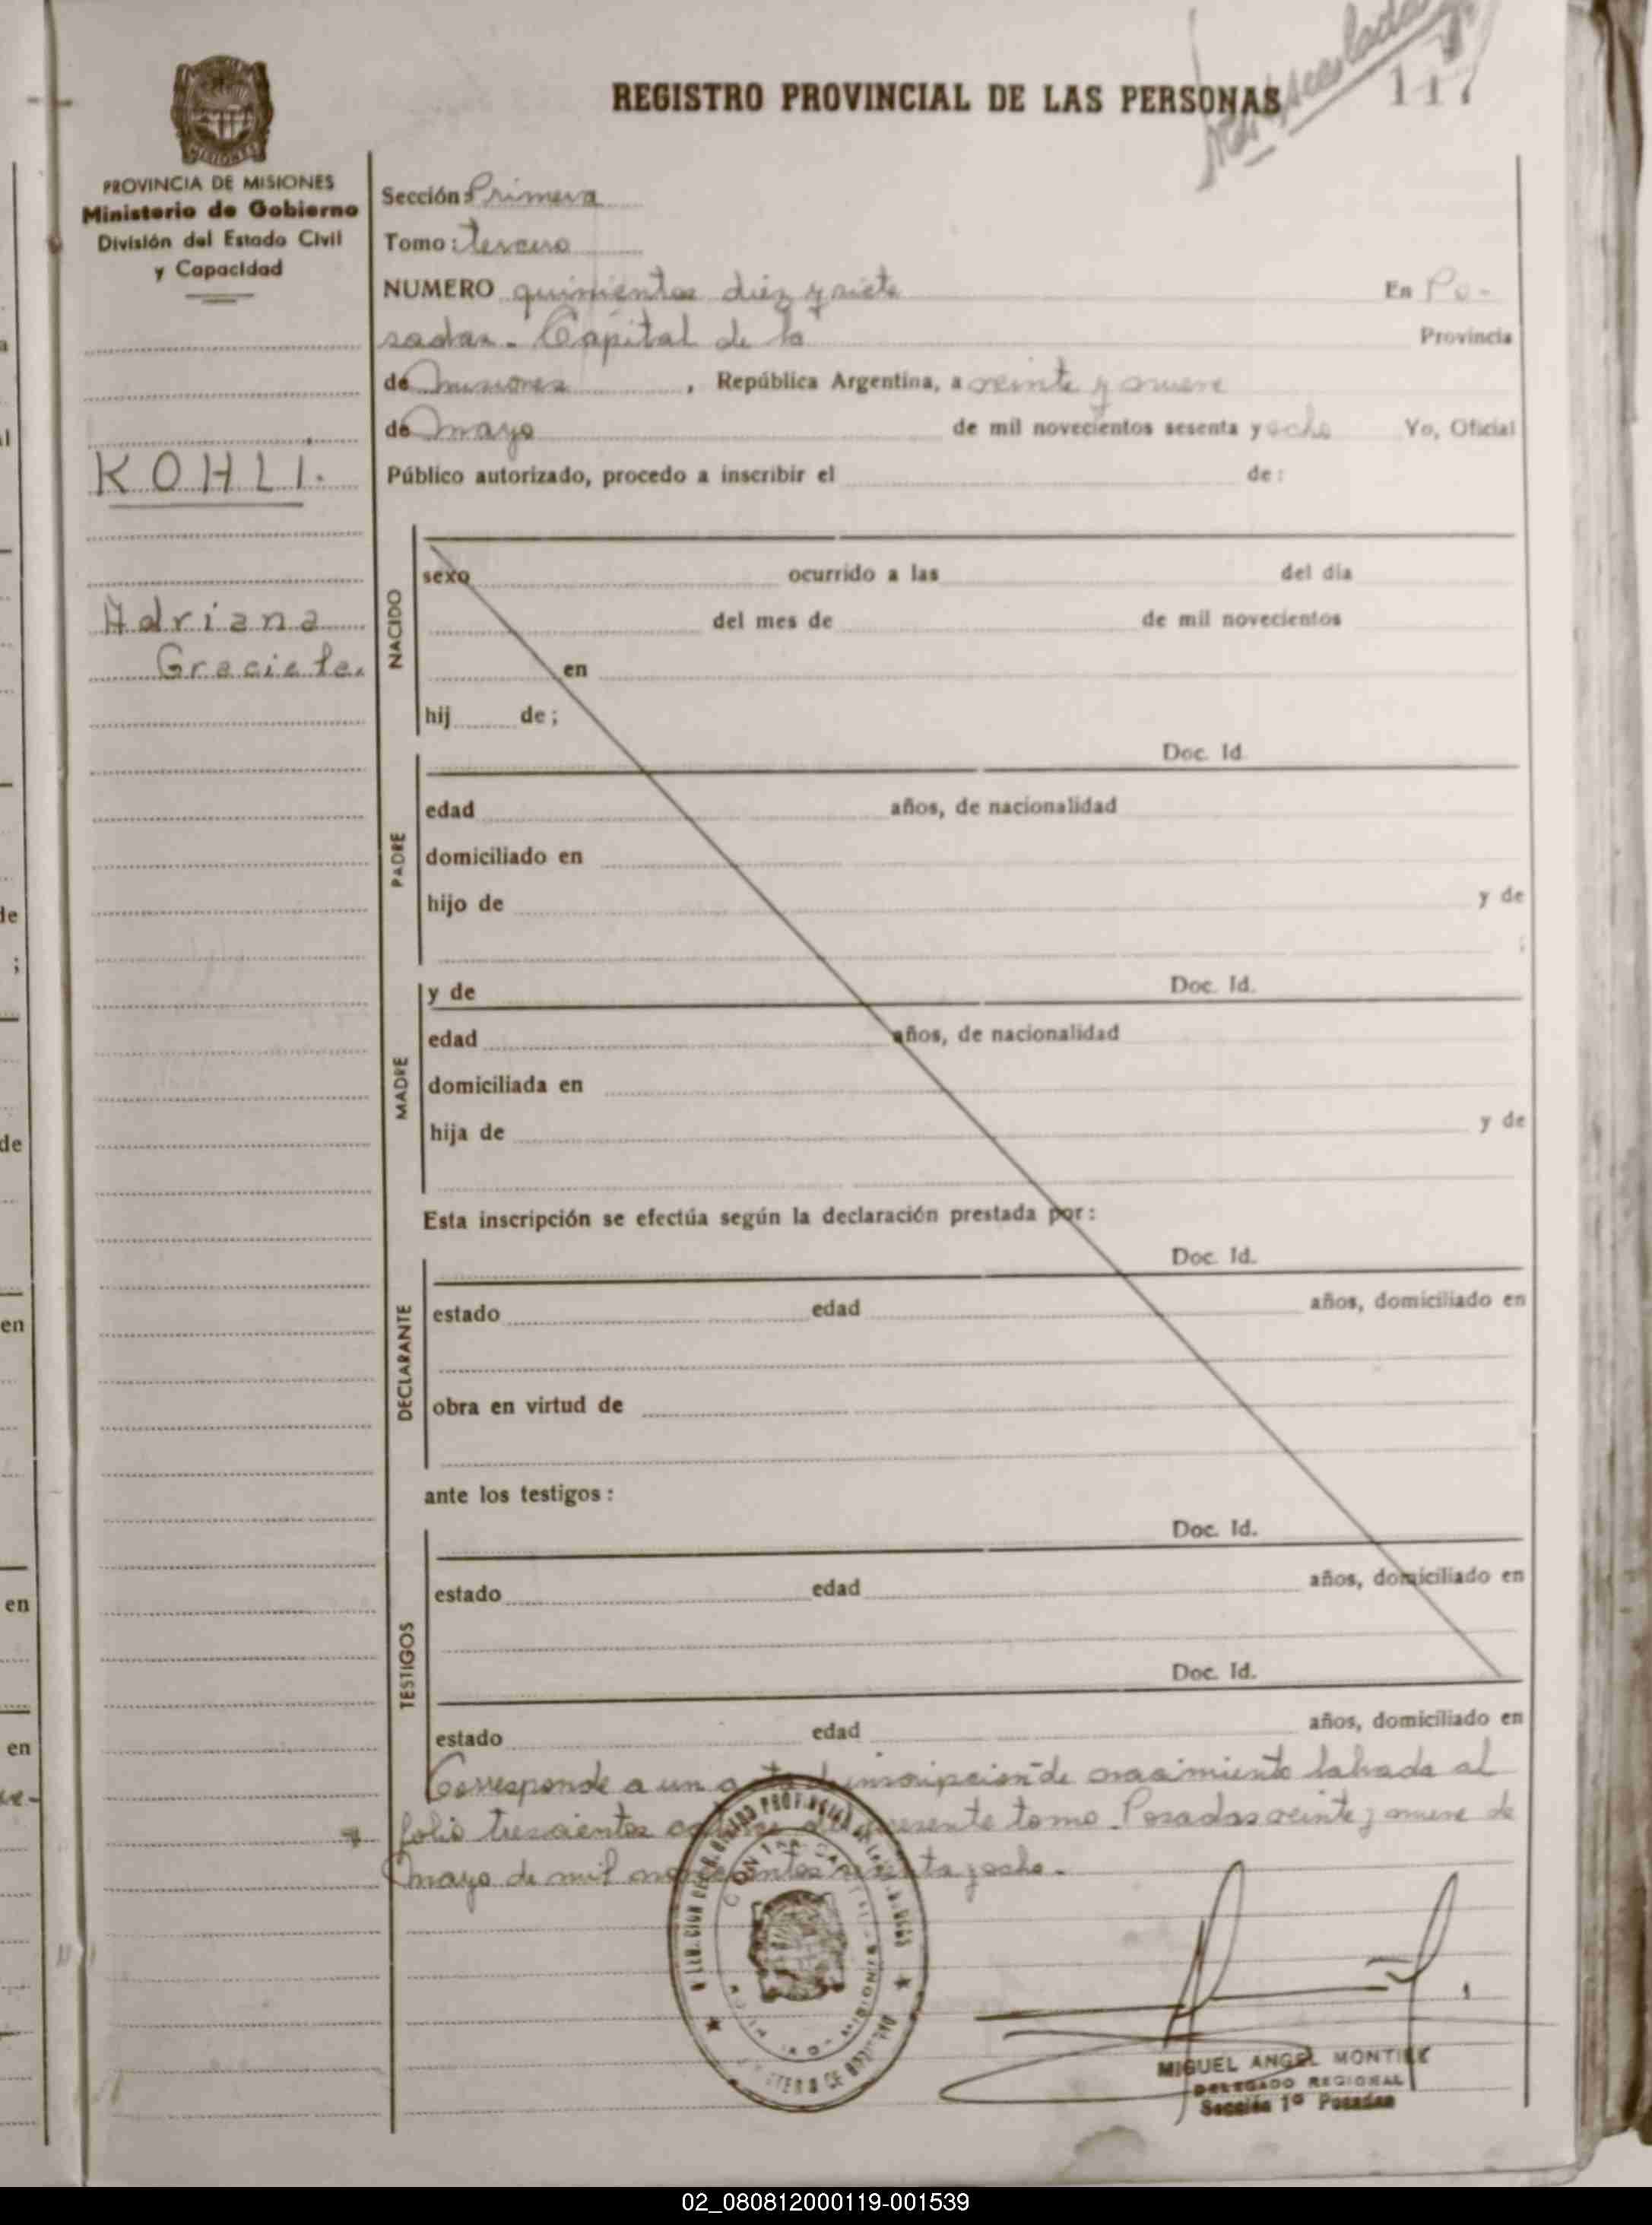 117
REGISTRO PROVINCIAL DE LAS PERSONAS
MISIONES
PROVINCIA DE MISIONES
Ministerio de Gobierno
División del Estado Civil
y Capacidad
KOHLI.
Adriana
Graciela.
Sección: Primera
Tomo: tercero
NUMERO quinientos diez y siete En Po-
sadas. Capital de la Provincia
de misiones, República Argentina, a veinte y nueve
de mayo de mil novecientos sesenta y ocho Yo, Oficial
Público autorizado, procedo a inscribir el de:
NACIDO
sexo ocurrido a las del día
del mes de de mil novecientos
en
hij de;
PADRE
Doc. Id.
edad años, de nacionalidad
domiciliado en
hijo de y de
;
MADRE
y de Doc. Id.
edad años, de nacionalidad
domiciliada en
hija de y de
Esta inscripción se efectúa según la declaración prestada por:
DECLARANTE
Doc. Id.
estado edad años, domiciliado en
obra en virtud de
ante los testigos:
TESTIGOS
Doc. Id.
estado edad años, domiciliado en
Doc. Id.
estado edad años, domiciliado en
Corresponde a un acta de inscripción de nacimiento labrada al
folio trescientos del presente tomo. Posadas veinte y nueve de
mayo de mil novecientos sesenta y ocho.
MIGUEL ANGEL MONTIEL
DELEGADO REGIONAL
Sección 1º Posadas
02_080812000119-001539